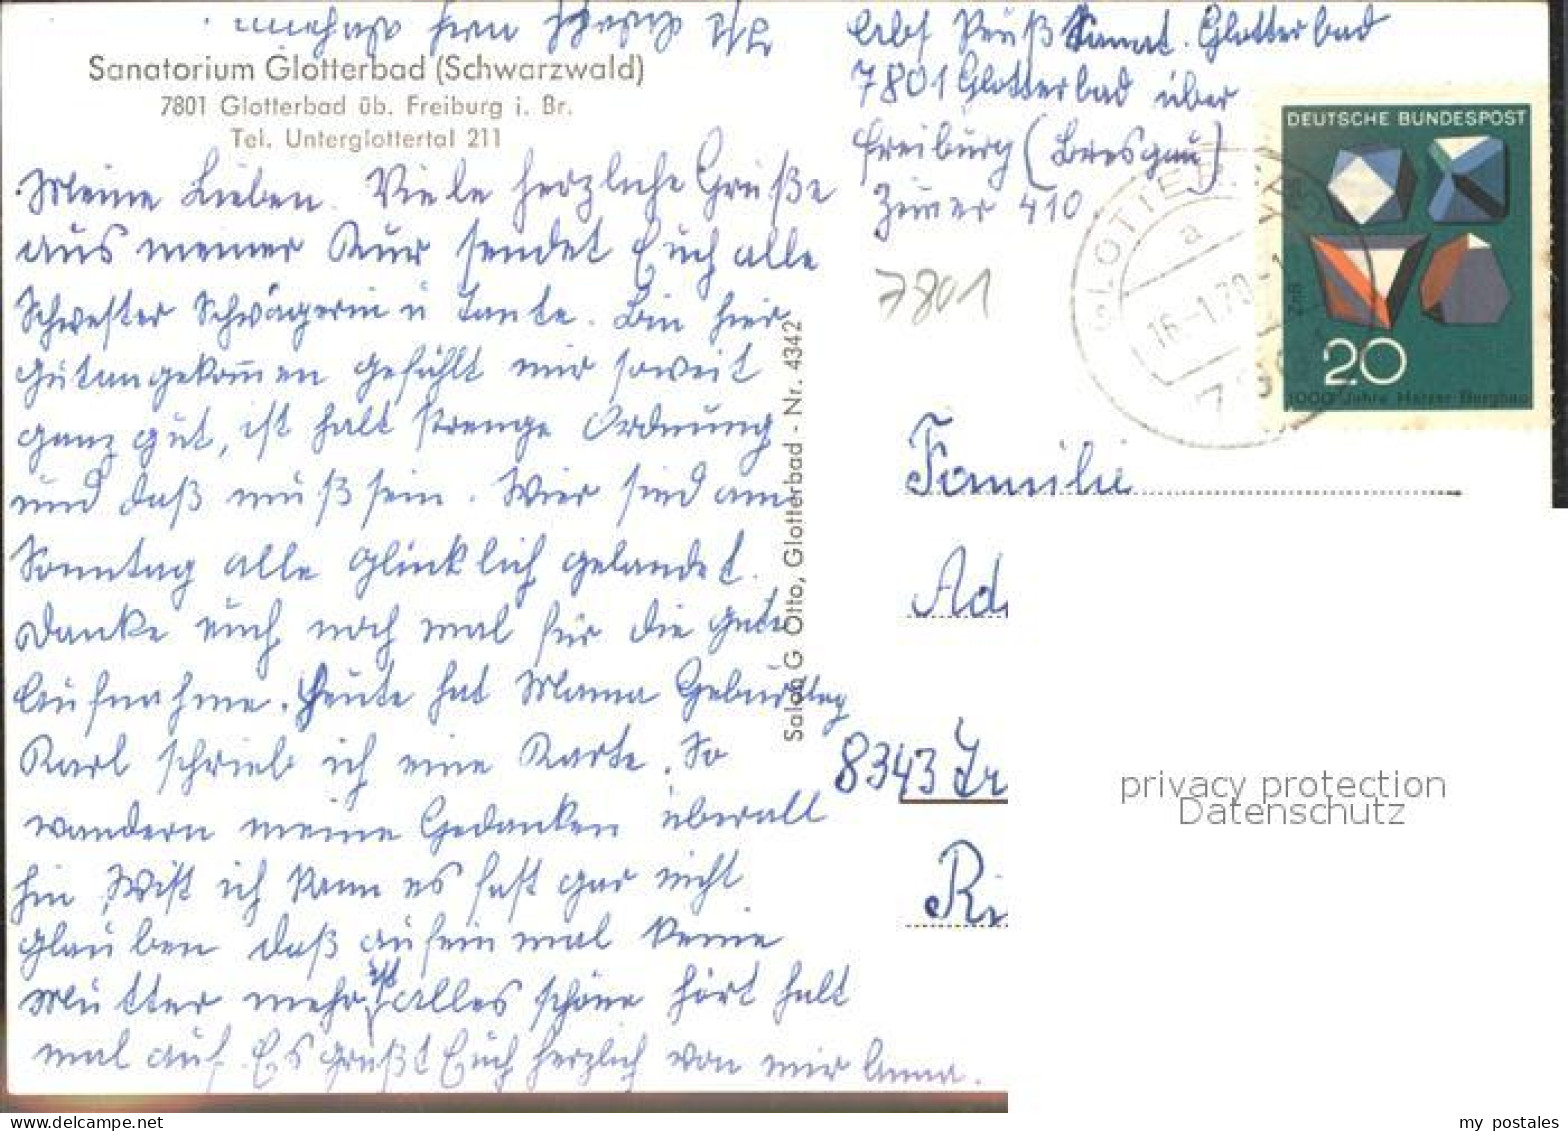 Sanatorium Glotterbad (Schwarzwald)
7801 Glotterbad üb. Freiburg i. Br.
Tel. Unterglottertal 211
Meine Lieben. Viele herzliche Grüße
aus meiner Kur sendet Euch alle
Schwester Schwägerin u Tante. Bin hier
gut angekommen gefühlt mir soweit
ganz gut, ist halt strenge Ordnung
und daß muß sein. Wier sind am
Sonntag alle glücklich gelandet.
Danke euch noch mal für die gute
Aufnahme. Heute hat Mama Geburtstag
Karl schrieb ich eine Karte. So
wandern meine Gedanken überall
hin. Wist ich kann es fast gar nicht
glauben daß auf ein mal keine
Mutter mehr ist alles schöne hört halt
mal auf. Es grüßt Euch herzlich von mir Anna.
Salon G Otto, Glotterbad - Nr. 4342
Sanat. Glotterbad
7801 Glotterbad über
Freiburg (Bresgau)
Zimmer 410
7801
DEUTSCHE BUNDESPOST
20
1000 Jahre Harzer Bergbau
GLOTTER
a
16.-1.70
Familie
Ad
8343 Tr
Ri
privacy protection
Datenschutz
my postales